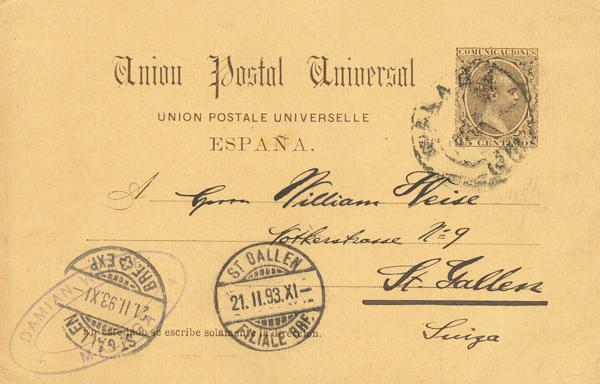 COMUNICACIONES
Union Postal Universal
UNION POSTALE UNIVERSELLE
15 CENTIMOS
ESPAÑA.
A Herrn William Weise
Notkerstrasse No 9
St. Gallen
Suiza
ST. GALLEN
21.II.93.XI-
FILIALE BRF.
BRF. EXP.
21.II.93.XI
ST. GALLEN
DAMIAN
En este lado se escribe solamente la dirección.